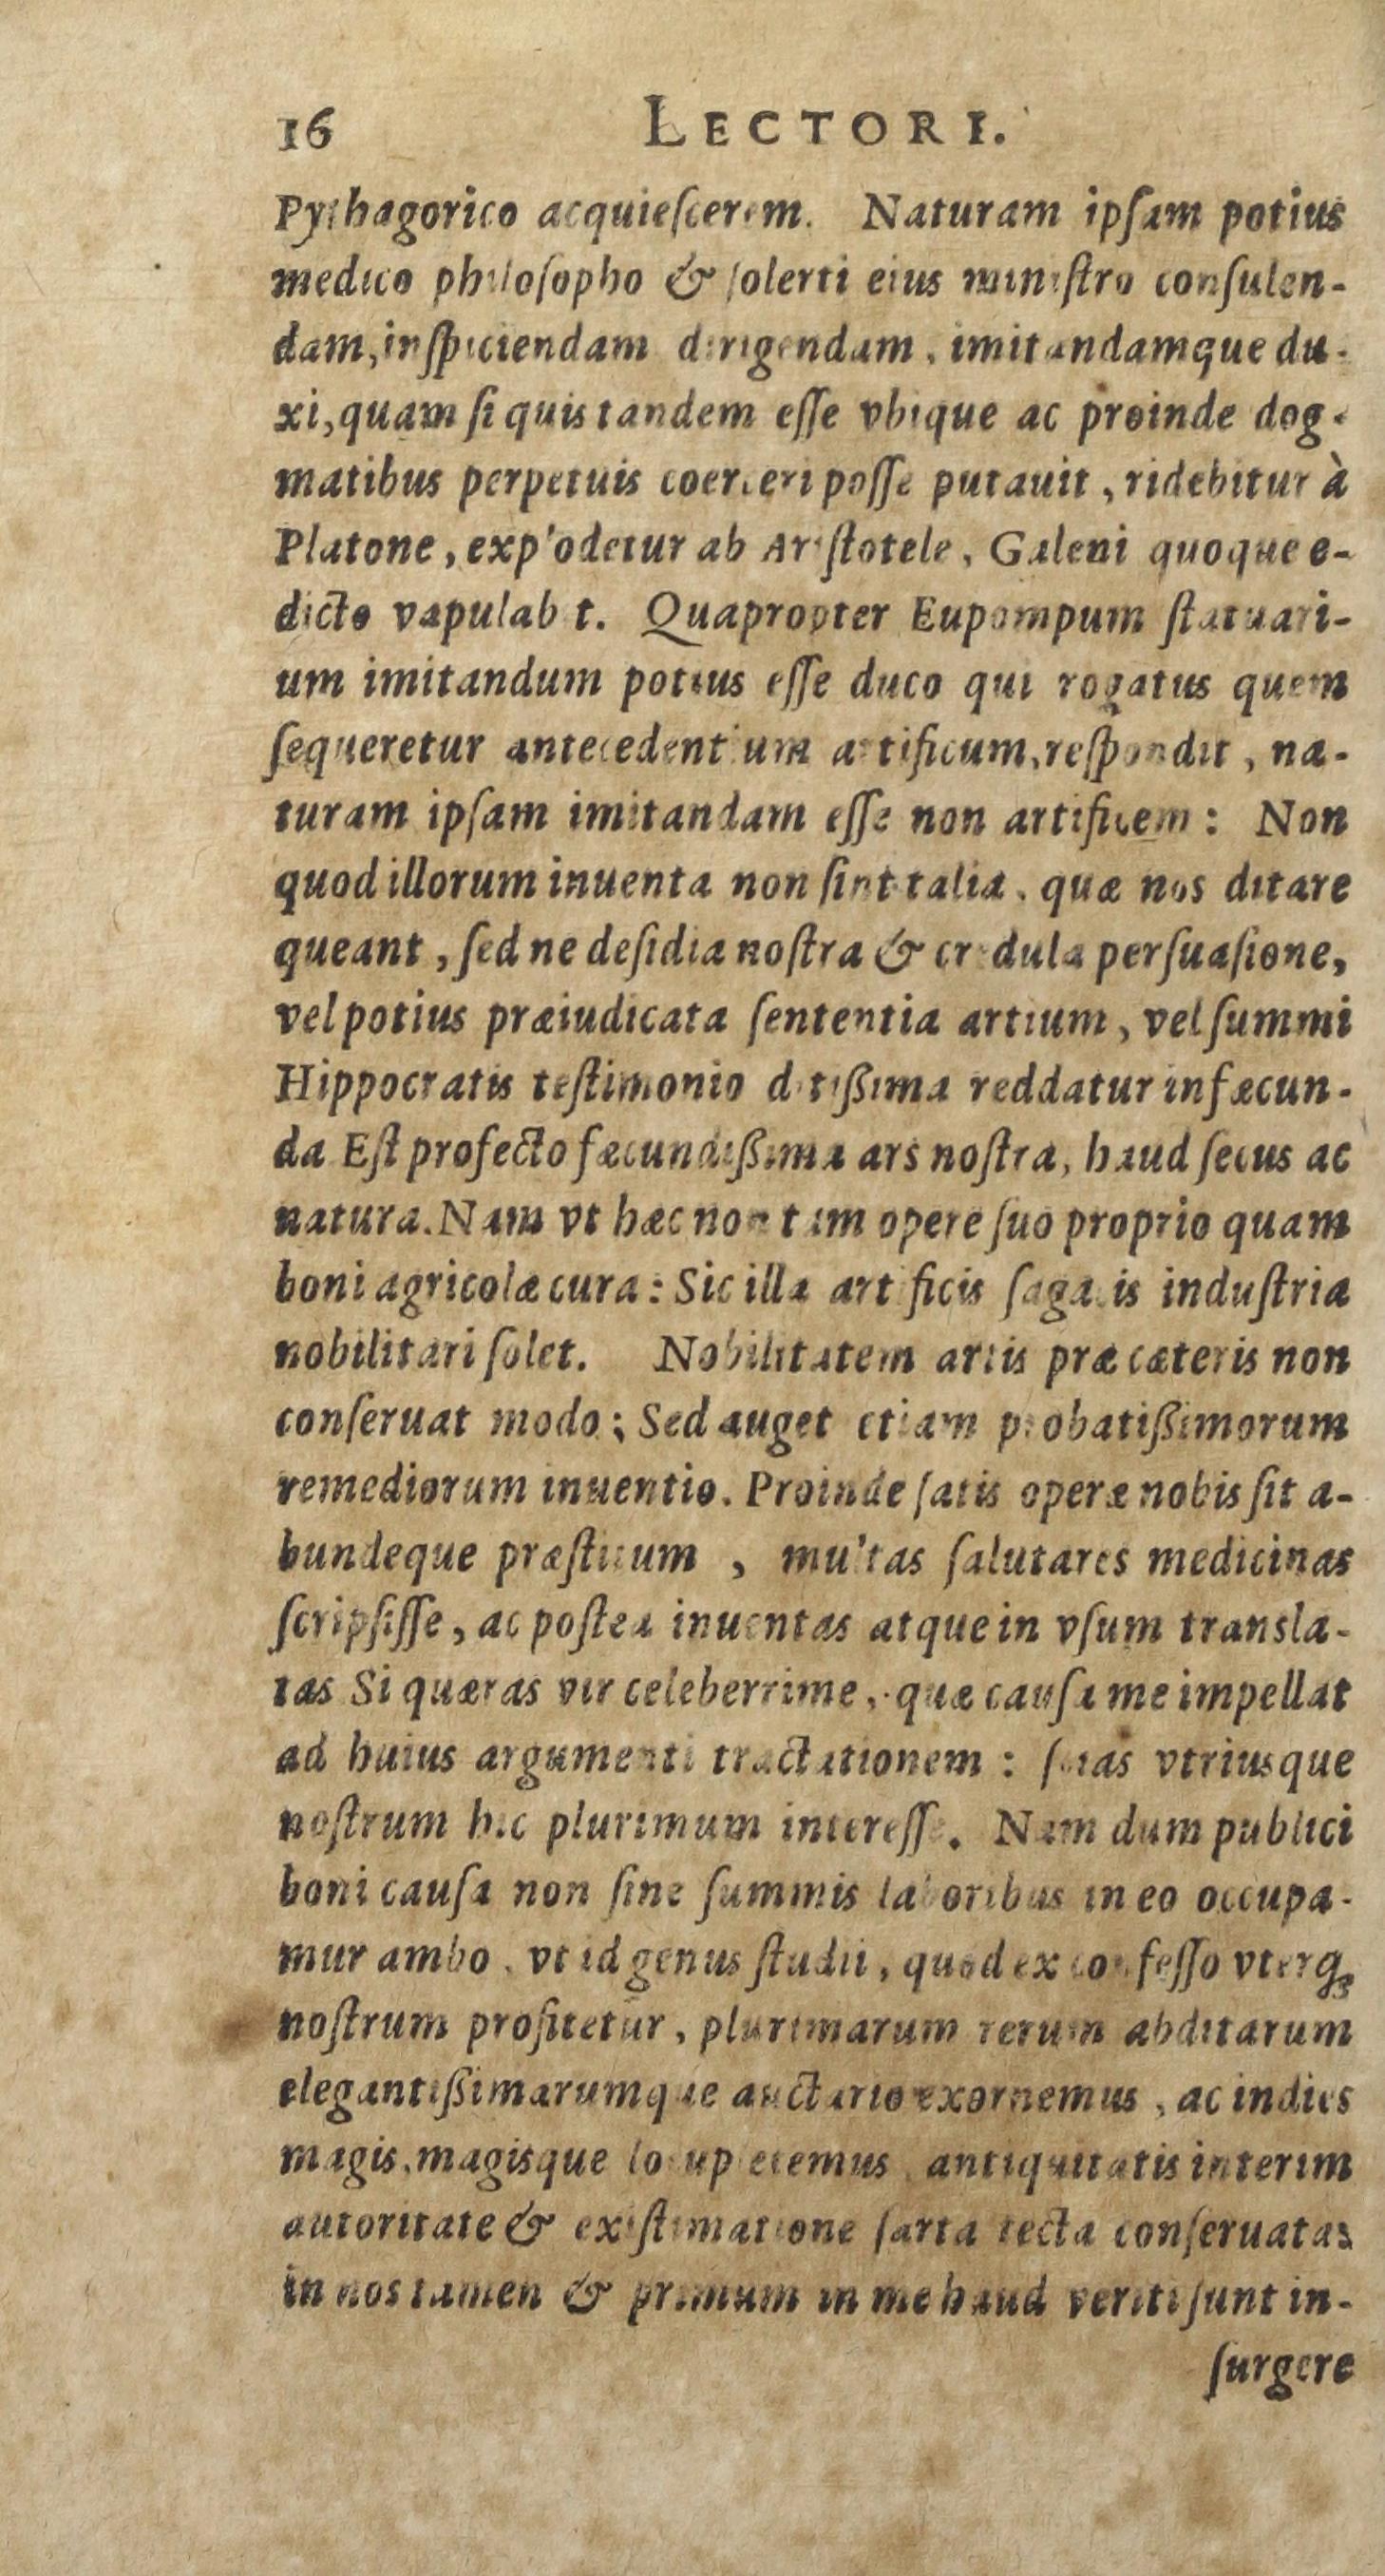 16 LECTORI.
Pythagorico acquieſcerem. Naturam ipſam potius
medico philoſopho & ſolerti eius miniſtro conſulen-
dam, inſpiciendam dirigendam, imitandamque du-
xi, quam ſi quis tandem eſſe vbique ac proinde dog-
matibus perpetuis coerceri poſſe putauit, ridebitur à
Platone, explodetur ab Ariſtotele, Galeni quoque e-
dicto vapulabit. Quapropter Eupompum ſtatuari-
um imitandum potius eſſe duco qui rogatus quem
ſequeretur antecedentium artificum, reſpondit, na-
turam ipſam imitandam eſſe non artificem: Non
quod illorum inuenta non ſint talia, quæ nos ditare
queant, ſed ne deſidia noſtra & credula perſuaſione,
vel potius præiudicata ſententia artium, vel ſummi
Hippocratis teſtimonio ditißima reddatur infæcun-
da Eſt profecto fæcundißima ars noſtra, haud ſecus ac
natura. Nam vt hæc non tam opere ſuo proprio quam
boni agricolæ cura: Sic illa artificis ſagacis induſtria
nobilitari ſolet. Nobilitatem artis præ cæteris non
conſeruat modo; Sed auget etiam probatißimorum
remediorum inuentio. Proinde ſatis operæ nobis ſit a-
bundeque præſtitum, multas ſalutares medicinas
ſcripſiſſe, ac poſtea inuentas atque in vſum transla-
tas Si quæras vir celeberrime, quæ cauſa me impellat
ad huius argumenti tractationem: ſcias vtriusque
noſtrum hic plurimum intereſſe. Nam dum publici
boni cauſa non ſine ſummis laboribus in eo occupa-
mur ambo, vt id genus ſtudii, quod ex confeſſo vterq;
noſtrum profitetur, plurimarum rerum abditarum
elegantißimarumque auctario exornemus, ac indies
magis, magisque locupletemus antiquitatis interim
autoritate & exiſtimatione ſarta tecta conſeruata:
in nos tamen & primum in me haud veriti ſunt in-
ſurgere